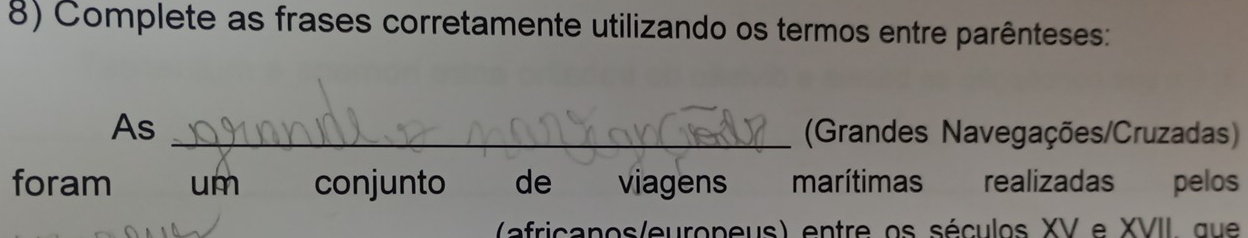 8) Complete as frases corretamente utilizando os termos entre parênteses:
As grandes (Grandes Navegações/Cruzadas)
foram um conjunto de viagens marítimas realizadas pelos
(africanos/europeus) entre os séculos XV e XVII, que